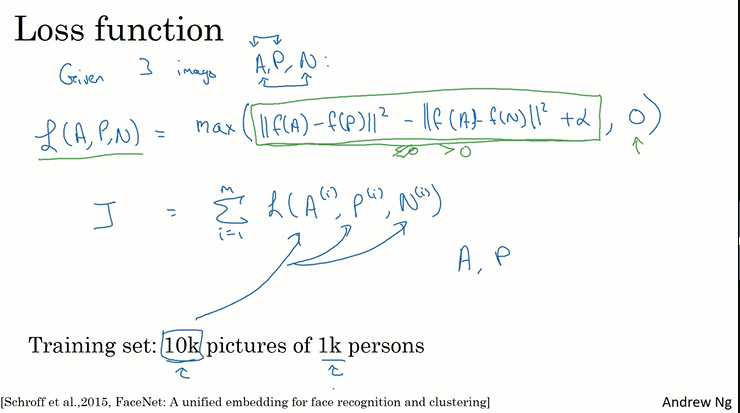 Loss function
Given 3 images A, P, N:
L(A,P,N) = max(||f(A)-f(P)||² - ||f(A)-f(N)||² + α, 0)
≤0 >0
J = Σ_{i=1}^{m} L(A^{(i)}, P^{(i)}, N^{(i)})
A, P
Training set: 10k pictures of 1k persons
[Schroff et al.,2015, FaceNet: A unified embedding for face recognition and clustering]
Andrew Ng